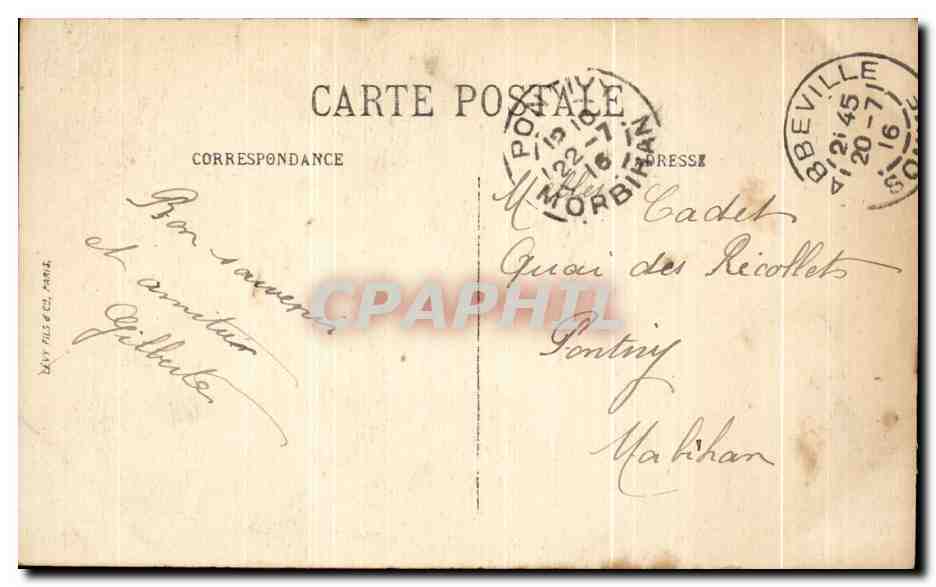 CARTE POSTALE
CORRESPONDANCE
ADRESSE
Bon souvenir
et amitiés
Gilberte
Melles Cadet
Quai des Récollets
Pontivy
Mabihan
PONTIVY
15 10
22 -7
16
MORBIHAN
ABBEVILLE
12 45
20 -7
16
SOMME
LÉVY FILS & Cie, PARIS.
CPAPHIL